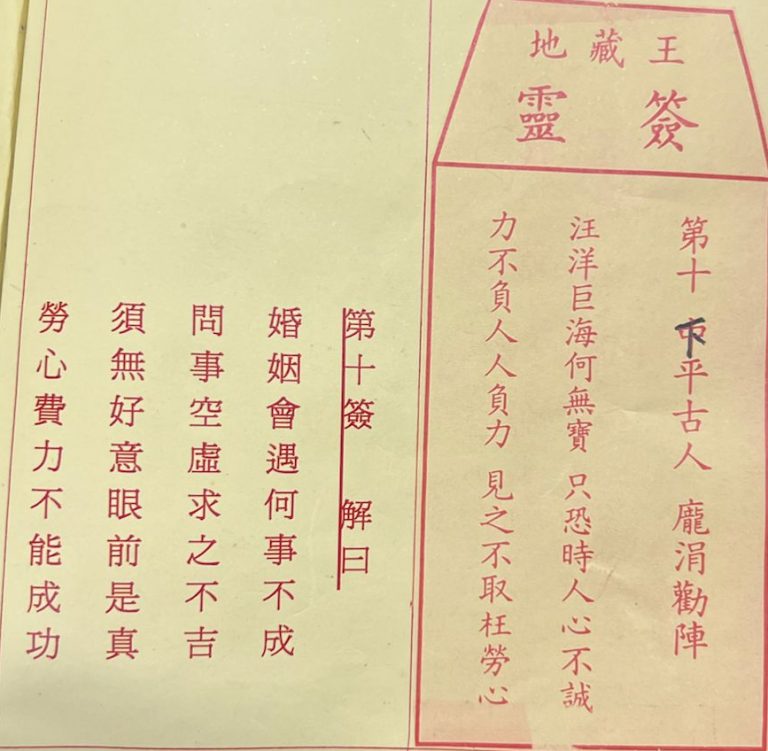 地藏王
靈簽
第十 下平古人 龐涓勸陣
汪洋巨海何無寶 只恐時人心不誠
力不負人人負力 見之不取枉勞心
第十簽 解曰
婚姻會遇何事不成
問事空虛求之不吉
須無好意眼前是真
勞心費力不能成功